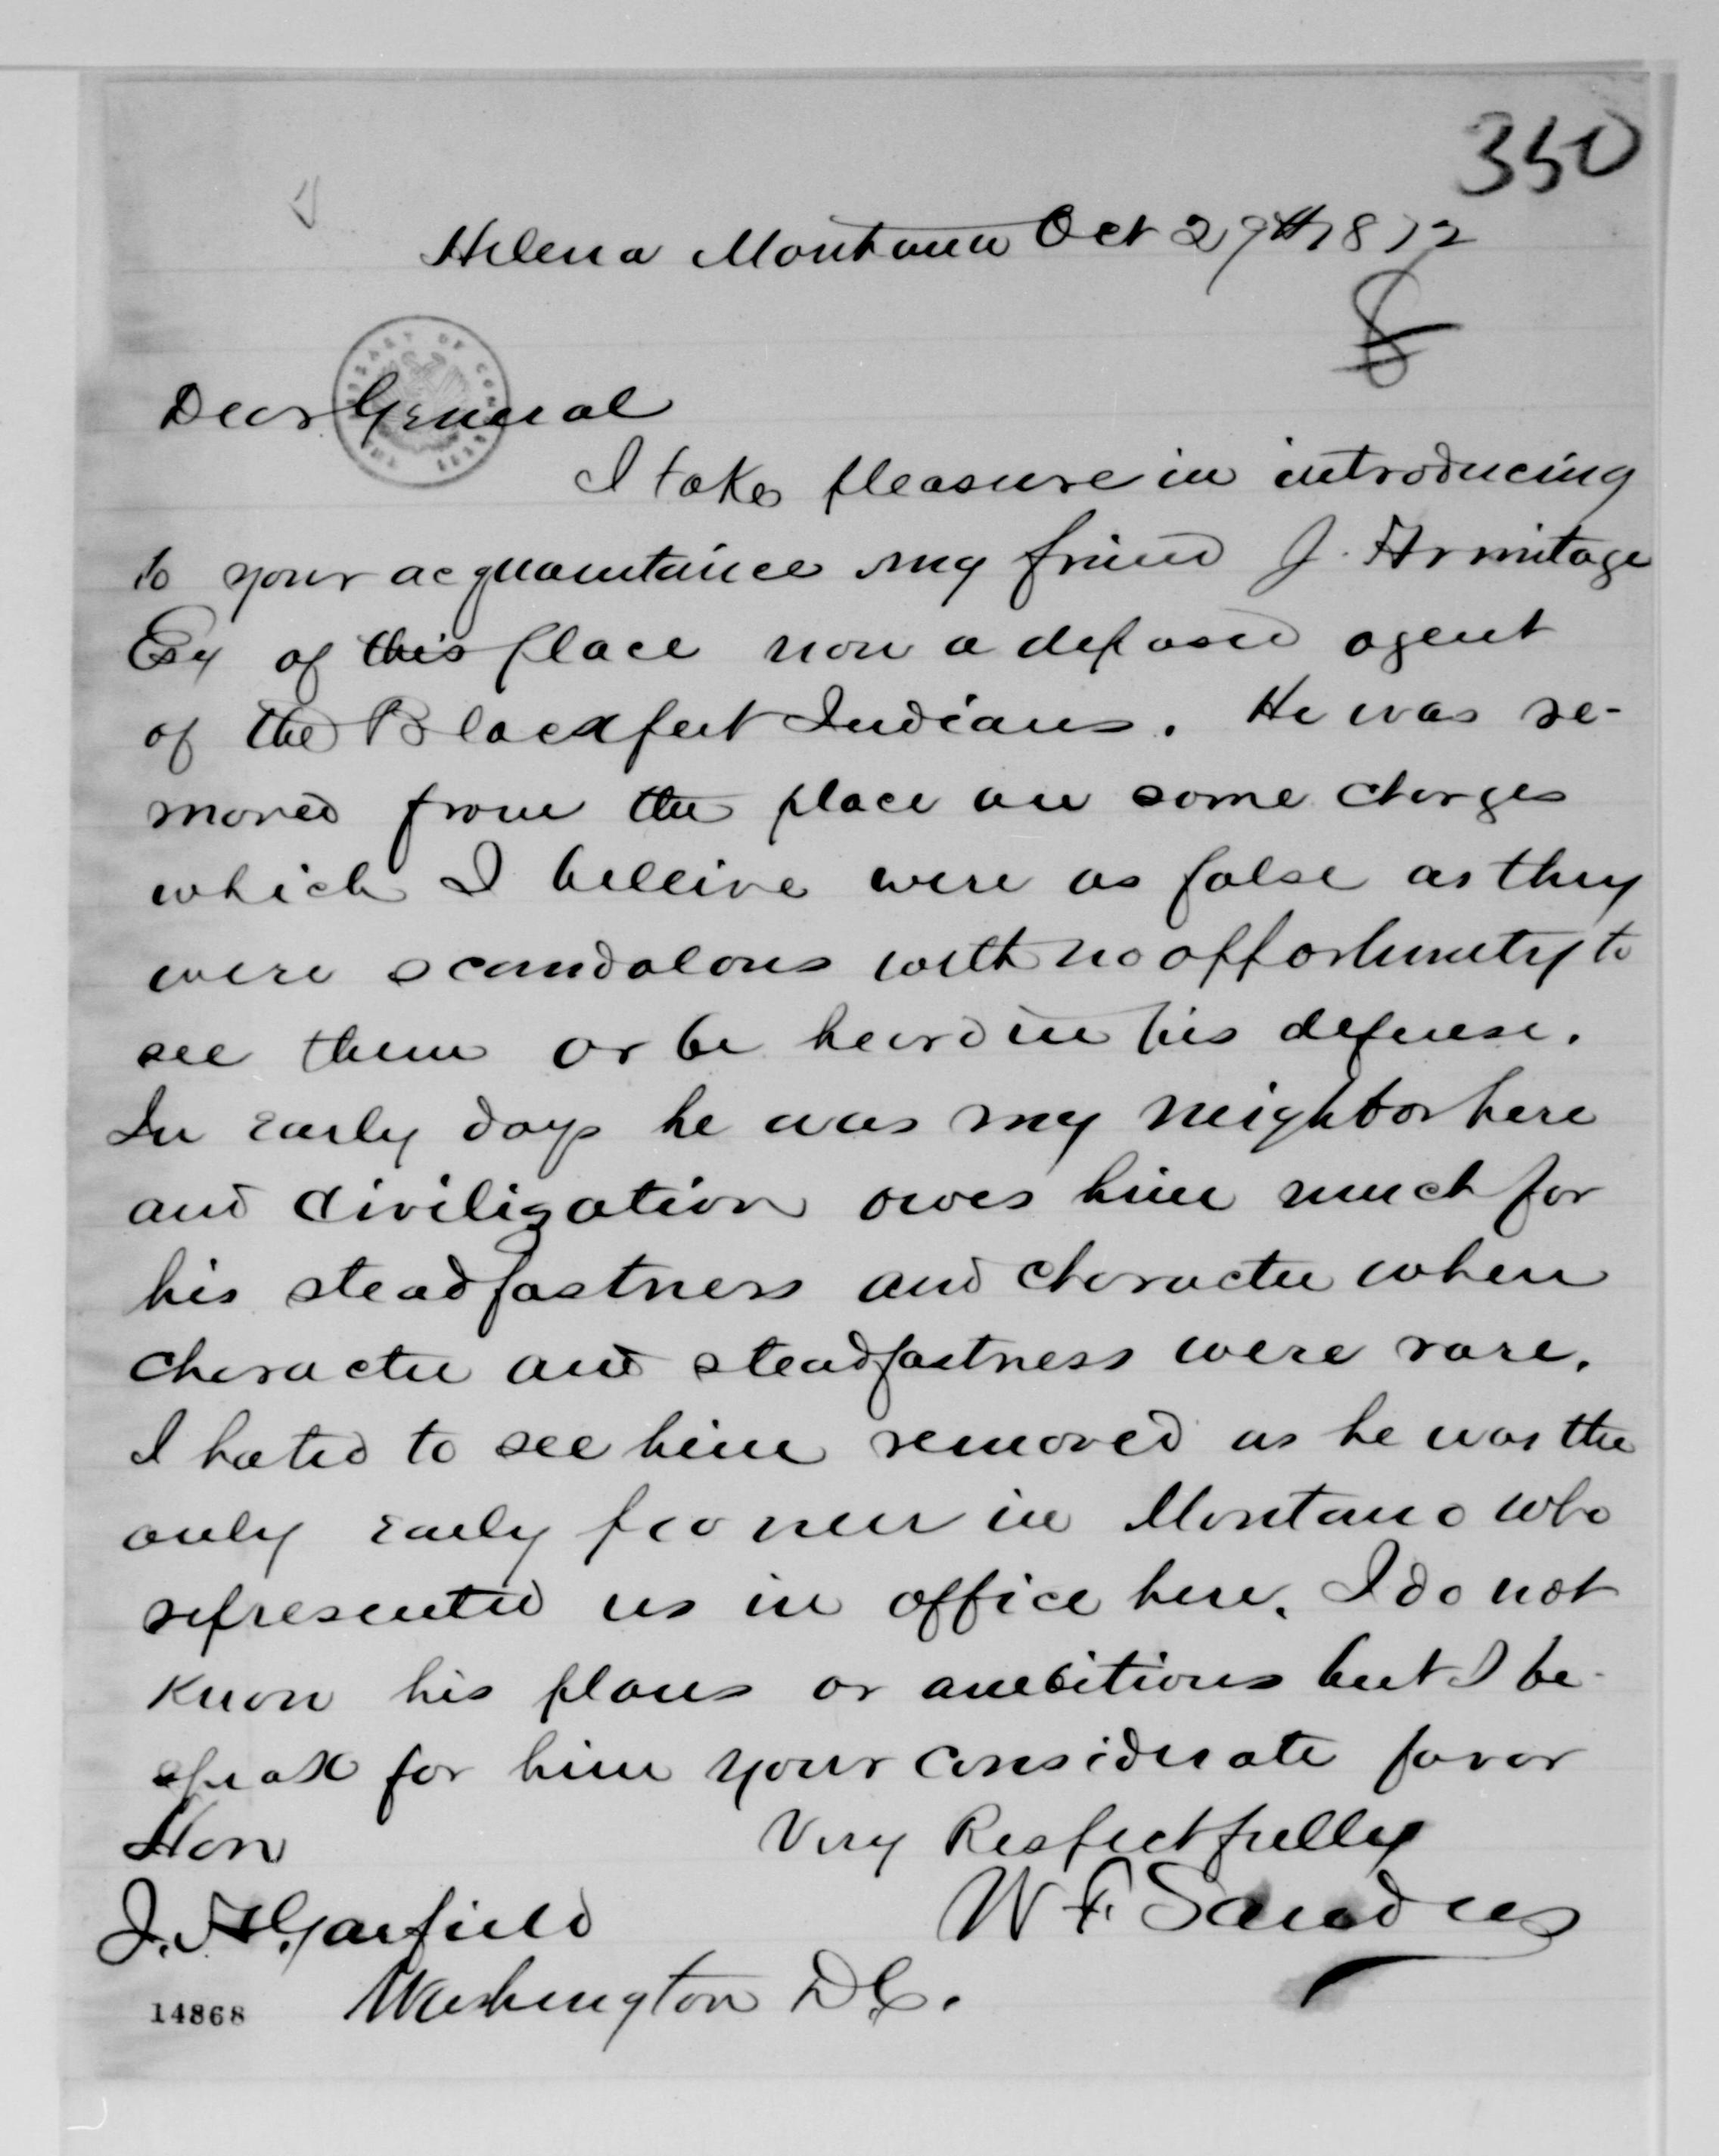 350
Helena Montana Oct 29th 1872
Dear General
I take pleasure in introducing
to your acquaintance my friend J. Armitage
Esq of this place now a deposed agent
of the Blackfeet Indians. He was re-
moved from the place on some charges
which I beleive were as false as they
were scandalous with no opportunity to
see them or be heard in his defense.
In early days he was my neighbor here
and civilization owes him much for
his steadfastness and character when
character and steadfastness were rare.
I hated to see him removed as he was the
only early pioneer in Montana who
represented us in office here. I do not
know his plans or ambitions but I be-
speak for him your considerate favor
Very Respectfully
W F. Sanders
Hon
J. A Garfield
Washington D C.
14868